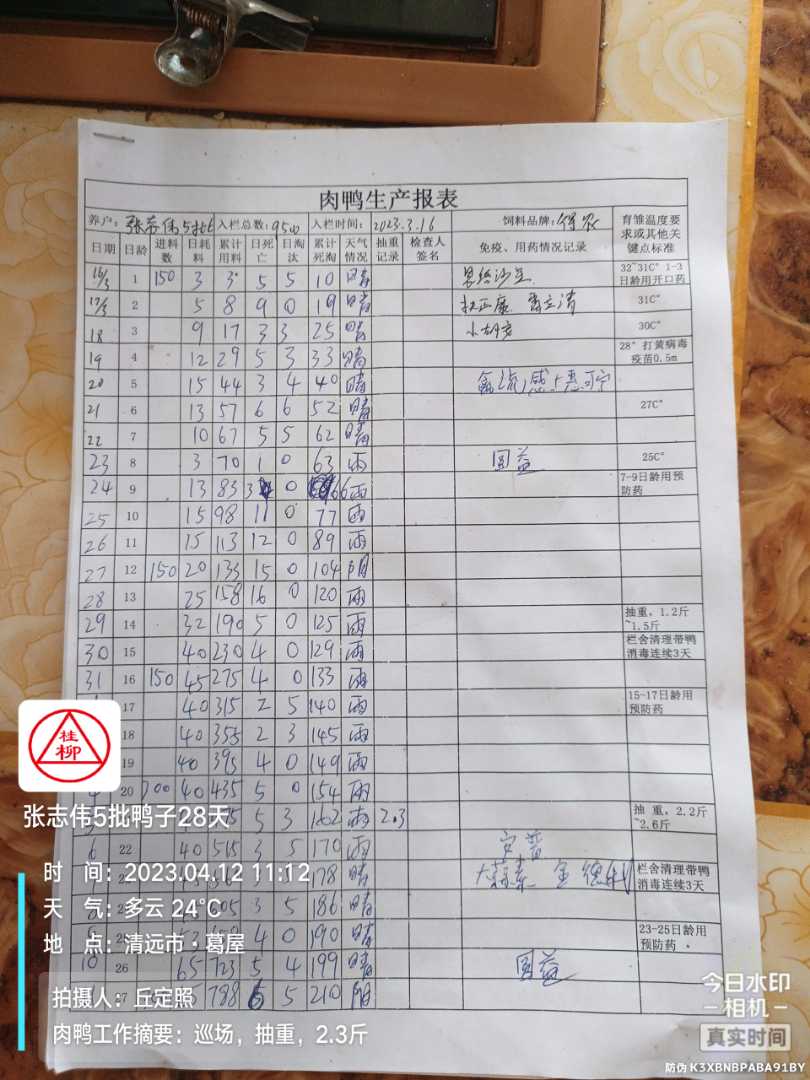 肉鸭生产报表
养户: 张志伟5批 入栏总数: 9500 入栏时间: 2023.3.16 饲料品牌: 育雏温度要求或其他关键点标准
日期 日龄 进料数 日耗料 累计用料 日死亡 日淘汰 累计死淘 天气情况 抽重记录 检查人签名 免疫、用药情况记录
16/3 1 150 3 3 5 5 10 晴 32~31C° 1-3日龄用开口药
17/3 2 5 8 9 0 19 晴 31C°
18 3 9 17 3 3 25 晴 30C°
19 4 12 29 5 3 33 晴 28° 打黄病毒疫苗0.5m
20 5 15 44 3 4 40 晴 禽流感+
21 6 13 57 6 6 52 晴 27C°
22 7 10 67 5 5 62 晴
23 8 3 70 1 0 63 雨 图益 25C°
24 9 13 83 3 0 66 雨 7-9日龄用预防药
25 10 15 98 11 0 77 雨
26 11 15 113 12 0 89 雨
27 12 150 20 133 15 0 104 阴
28 13 25 158 16 0 120 雨
29 14 32 190 5 0 125 雨 抽重，1.2斤~1.5斤
30 15 40 230 4 0 129 雨 栏舍清理带鸭消毒连续3天
31 16 150 45 275 4 0 133 雨
17 40 315 2 5 140 雨 15-17日龄用预防药
18 40 355 2 3 145 雨
19 40 395 4 0 149 雨
4 20 40 435 5 0 154 雨
5 3 162 雨 2.3 抽 重，2.2斤~2.6斤
6 22 40 515 3 5 170 雨
178 晴 大蒜素 栏舍清理带鸭消毒连续3天
3 5 186 晴
4 0 190 晴 23-25日龄用预防药.
10 26 65 723 5 4 199 晴 图益
788 6 5 210 阴
桂柳
张志伟5批鸭子28天
时 间: 2023.04.12 11:12
天 气: 多云 24℃
地 点: 清远市·葛屋
拍摄人: 丘定照
肉鸭工作摘要: 巡场，抽重，2.3斤
今日水印
-相机-
真实时间
防伪 K3XBNBPABA91BY